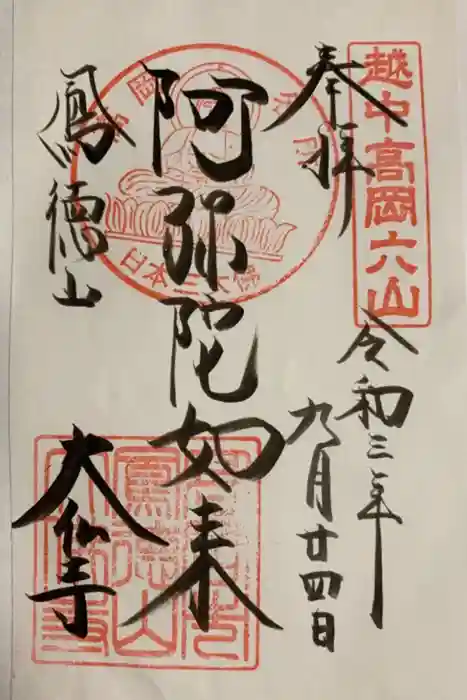 越中高岡六山
奉拝
令和三年
九月廿四日
阿弥陀如来
日本三大佛
鳳徳山
大仙寺